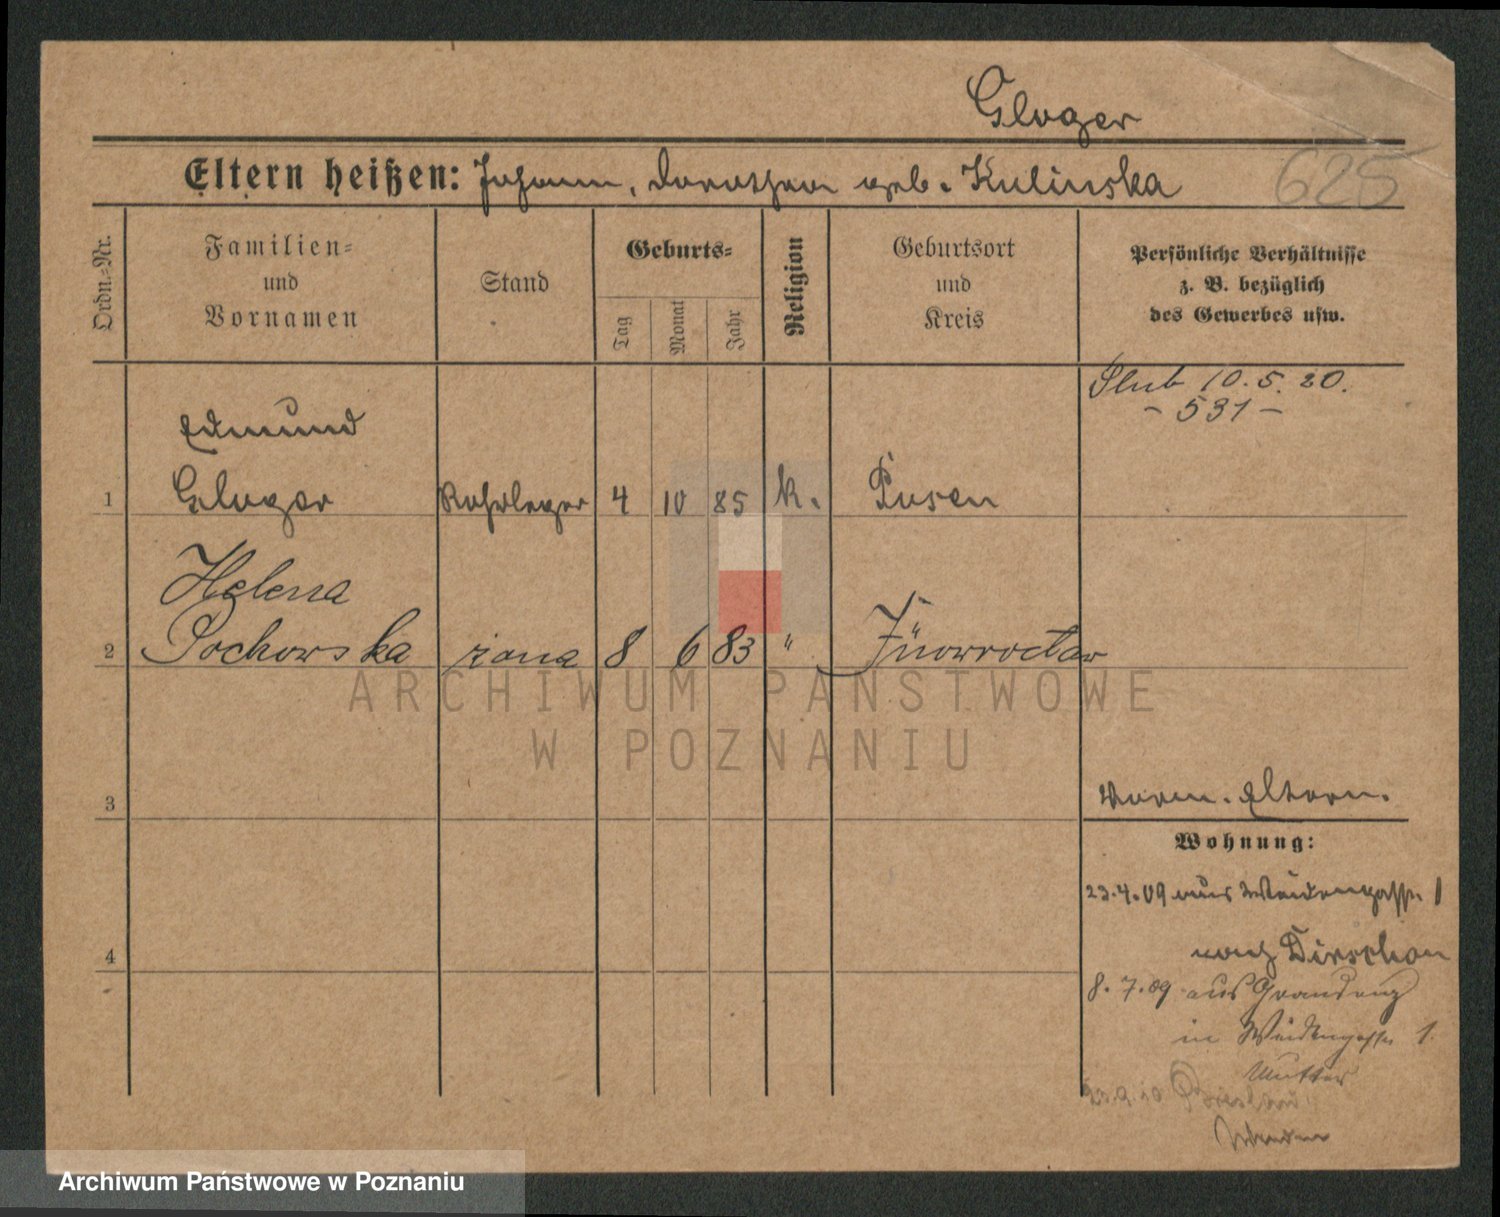 Gloger
Eltern heißen: Johann, Dorothea geb. Kulinska
625
Ordn.=Nr.
Familien=
und
Vornamen
Stand
Geburts=
Tag
Monat
Jahr
Religion
Geburtsort
und
Kreis
Persönliche Verhältnisse
z. B. bezüglich
des Gewerbes usw.
Ślub 10.5.20.
- 531 -
Edmund
1 Gloger Rohrleger 4 10 85 k. Posen
Helena
2 Pochowska żona 8 6 83 "
ARCHIWUM PAŃSTWOWE
W POZNANIU
3
Eltern.
Wohnung:
23.4.09 aus Weidengasse 1
4
nach Dirschau
8.7.09 aus Graudenz
in Weidengasse 1.
Mutter
Archiwum Państwowe w Poznaniu